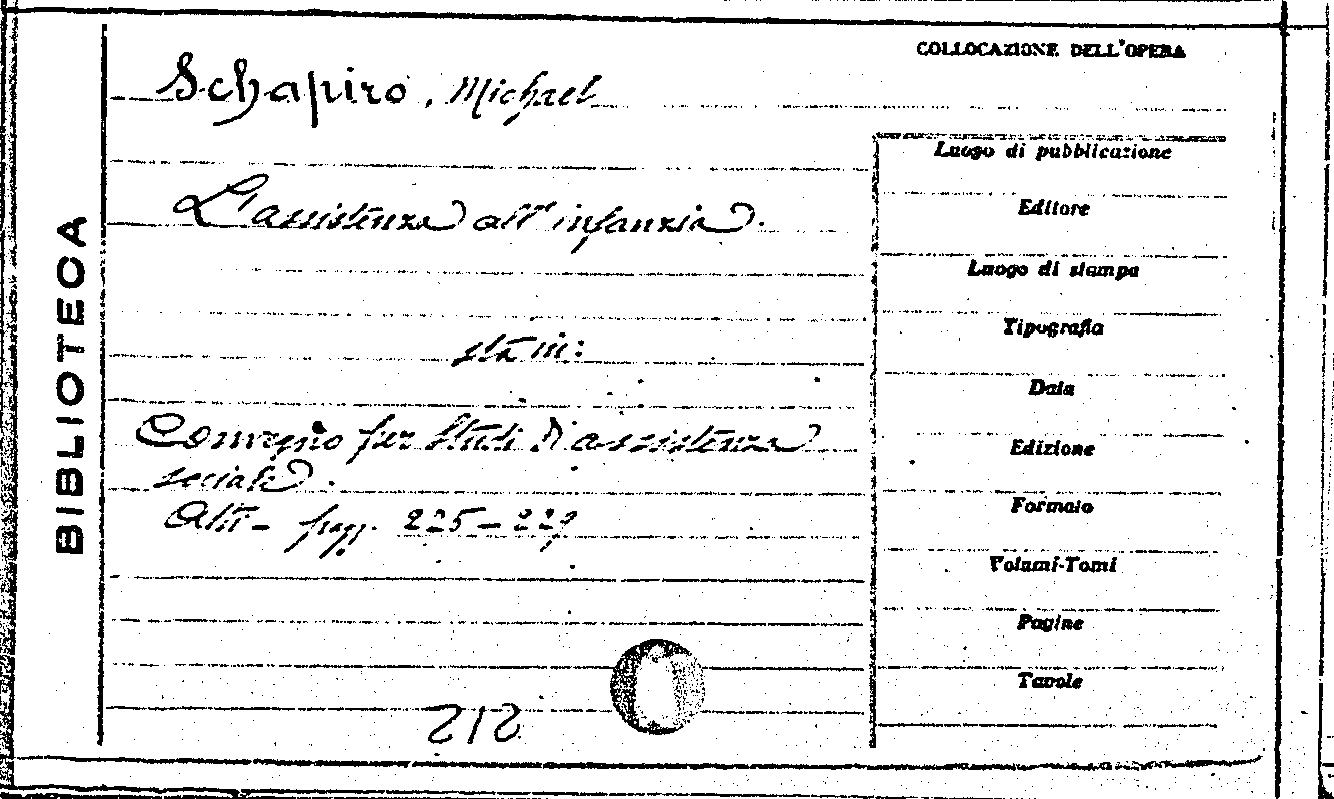 COLLOCAZIONE DELL'OPERA
Schapiro, Michael
Luogo di pubblicazione
L'assistenza all'infanzia.
Editore
Luogo di stampa
Tipografia
sta in:
Data
Convegno per Studi di assistenza
Edizione
sociale.
Atti - pagg. 225-229
Formato
Volumi-Tomi
Pagine
Tavole
212
BIBLIOTECA